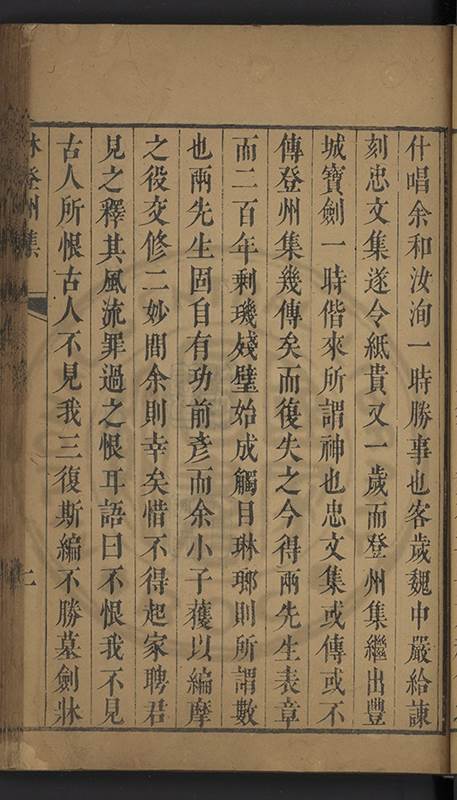 什唱余和汝洵一時勝事也客歲魏中嚴給諫
刻忠文集遂令紙貴又一歲而登州集繼出豐
城寶劍一時偕來所謂神也忠文集或傳或不
傳登州集幾傳矣而復失之今得兩先生表章
而二百年剩璣殘璧始成觸目琳瑯則所謂數
也兩先生固自有功前彥而余小子獲以編摩
之役交修二妙間余則幸矣惜不得起家聘君
見之釋其風流罪過之恨耳語曰不恨我不見
古人所恨古人不見我三復斯編不勝墓劍牀
林登州集 二